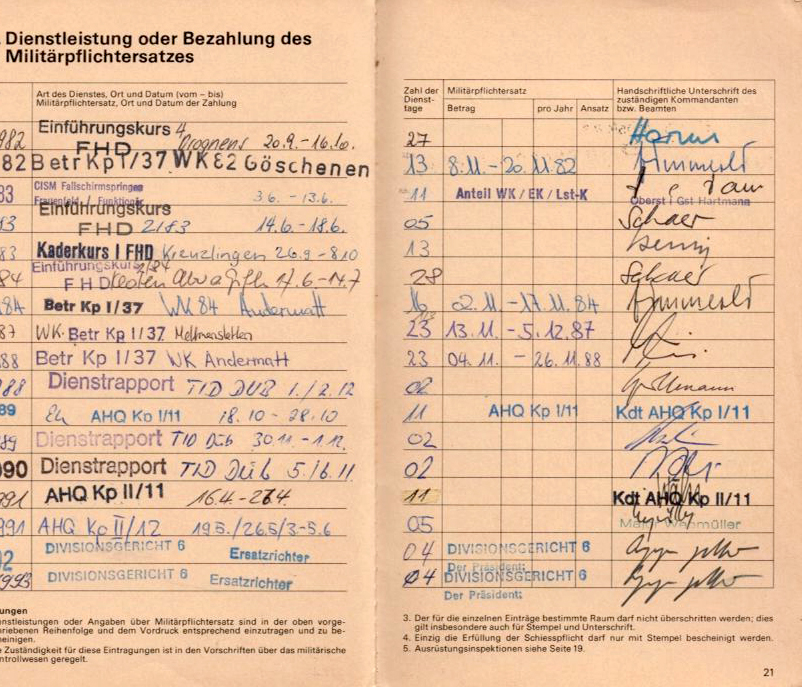 . Dienstleistung oder Bezahlung des
Militärpflichtersatzes
Art des Dienstes, Ort und Datum (vom – bis)
Militärpflichtersatz, Ort und Datum der Zahlung
982 Einführungskurs 4
FHD Drognens 20.9. - 16.10.
82 Betr Kp I/37 WK 82 Göschenen
83 CISM Fallschirmspringen
Frauenfeld / Funktionär 3.6. - 13.6.
83 Einführungskurs
FHD 2/83 14.6. - 18.6.
83 Kaderkurs I FHD Kreuzlingen 26.9 - 8.10
84 Einführungskurs 2/84
FHD 17.6 - 14.7
984 Betr Kp I/37 WK 84 Andermatt
87 WK Betr Kp I/37 Mettmenstetten
88 Betr Kp I/37 WK Andermatt
988 Dienstrapport TID DÜB 1./2.12
89 AHQ Kp I/11 18.10 - 28.10
989 Dienstrapport TID Düb 30.11. - 1.12.
990 Dienstrapport TID Düb 5./6.11
991 AHQ Kp II/11 16.4. - 26.4.
991 AHQ Kp II/12 19.5./26.5/3-5.6
92 DIVISIONSGERICHT 6 Ersatzrichter
1993 DIVISIONSGERICHT 6 Ersatzrichter
ungen
nstleistungen oder Angaben über Militärpflichtersatz sind in der oben vorge-
hriebenen Reihenfolge und dem Vordruck entsprechend einzutragen und zu be-
heinigen.
e Zuständigkeit für diese Eintragungen ist in den Vorschriften über das militärische
ntrollwesen geregelt.
Zahl der
Dienst-
tage
Militärpflichtersatz
Betrag pro Jahr Ansatz
Handschriftliche Unterschrift des
zuständigen Kommandanten
bzw. Beamten
27
13 8.11. - 20.11.82
11 Anteil WK / EK / Lst-K Oberst i Gst Hartmann
05 Schaer
13
28 Schaer
16 02.11. - 17.11.84
23 13.11. - 5.12.87
23 04.11. - 26.11.88
02
11 AHQ Kp I/11 Kdt AHQ Kp I/11
02
02
11 Kdt AHQ Kp II/11
05
04 DIVISIONSGERICHT 6
Der Präsident:
04 DIVISIONSGERICHT 6
Der Präsident:
3. Der für die einzelnen Einträge bestimmte Raum darf nicht überschritten werden; dies
gilt insbesondere auch für Stempel und Unterschrift.
4. Einzig die Erfüllung der Schiesspflicht darf nur mit Stempel bescheinigt werden.
5. Ausrüstungsinspektionen siehe Seite 19.
21